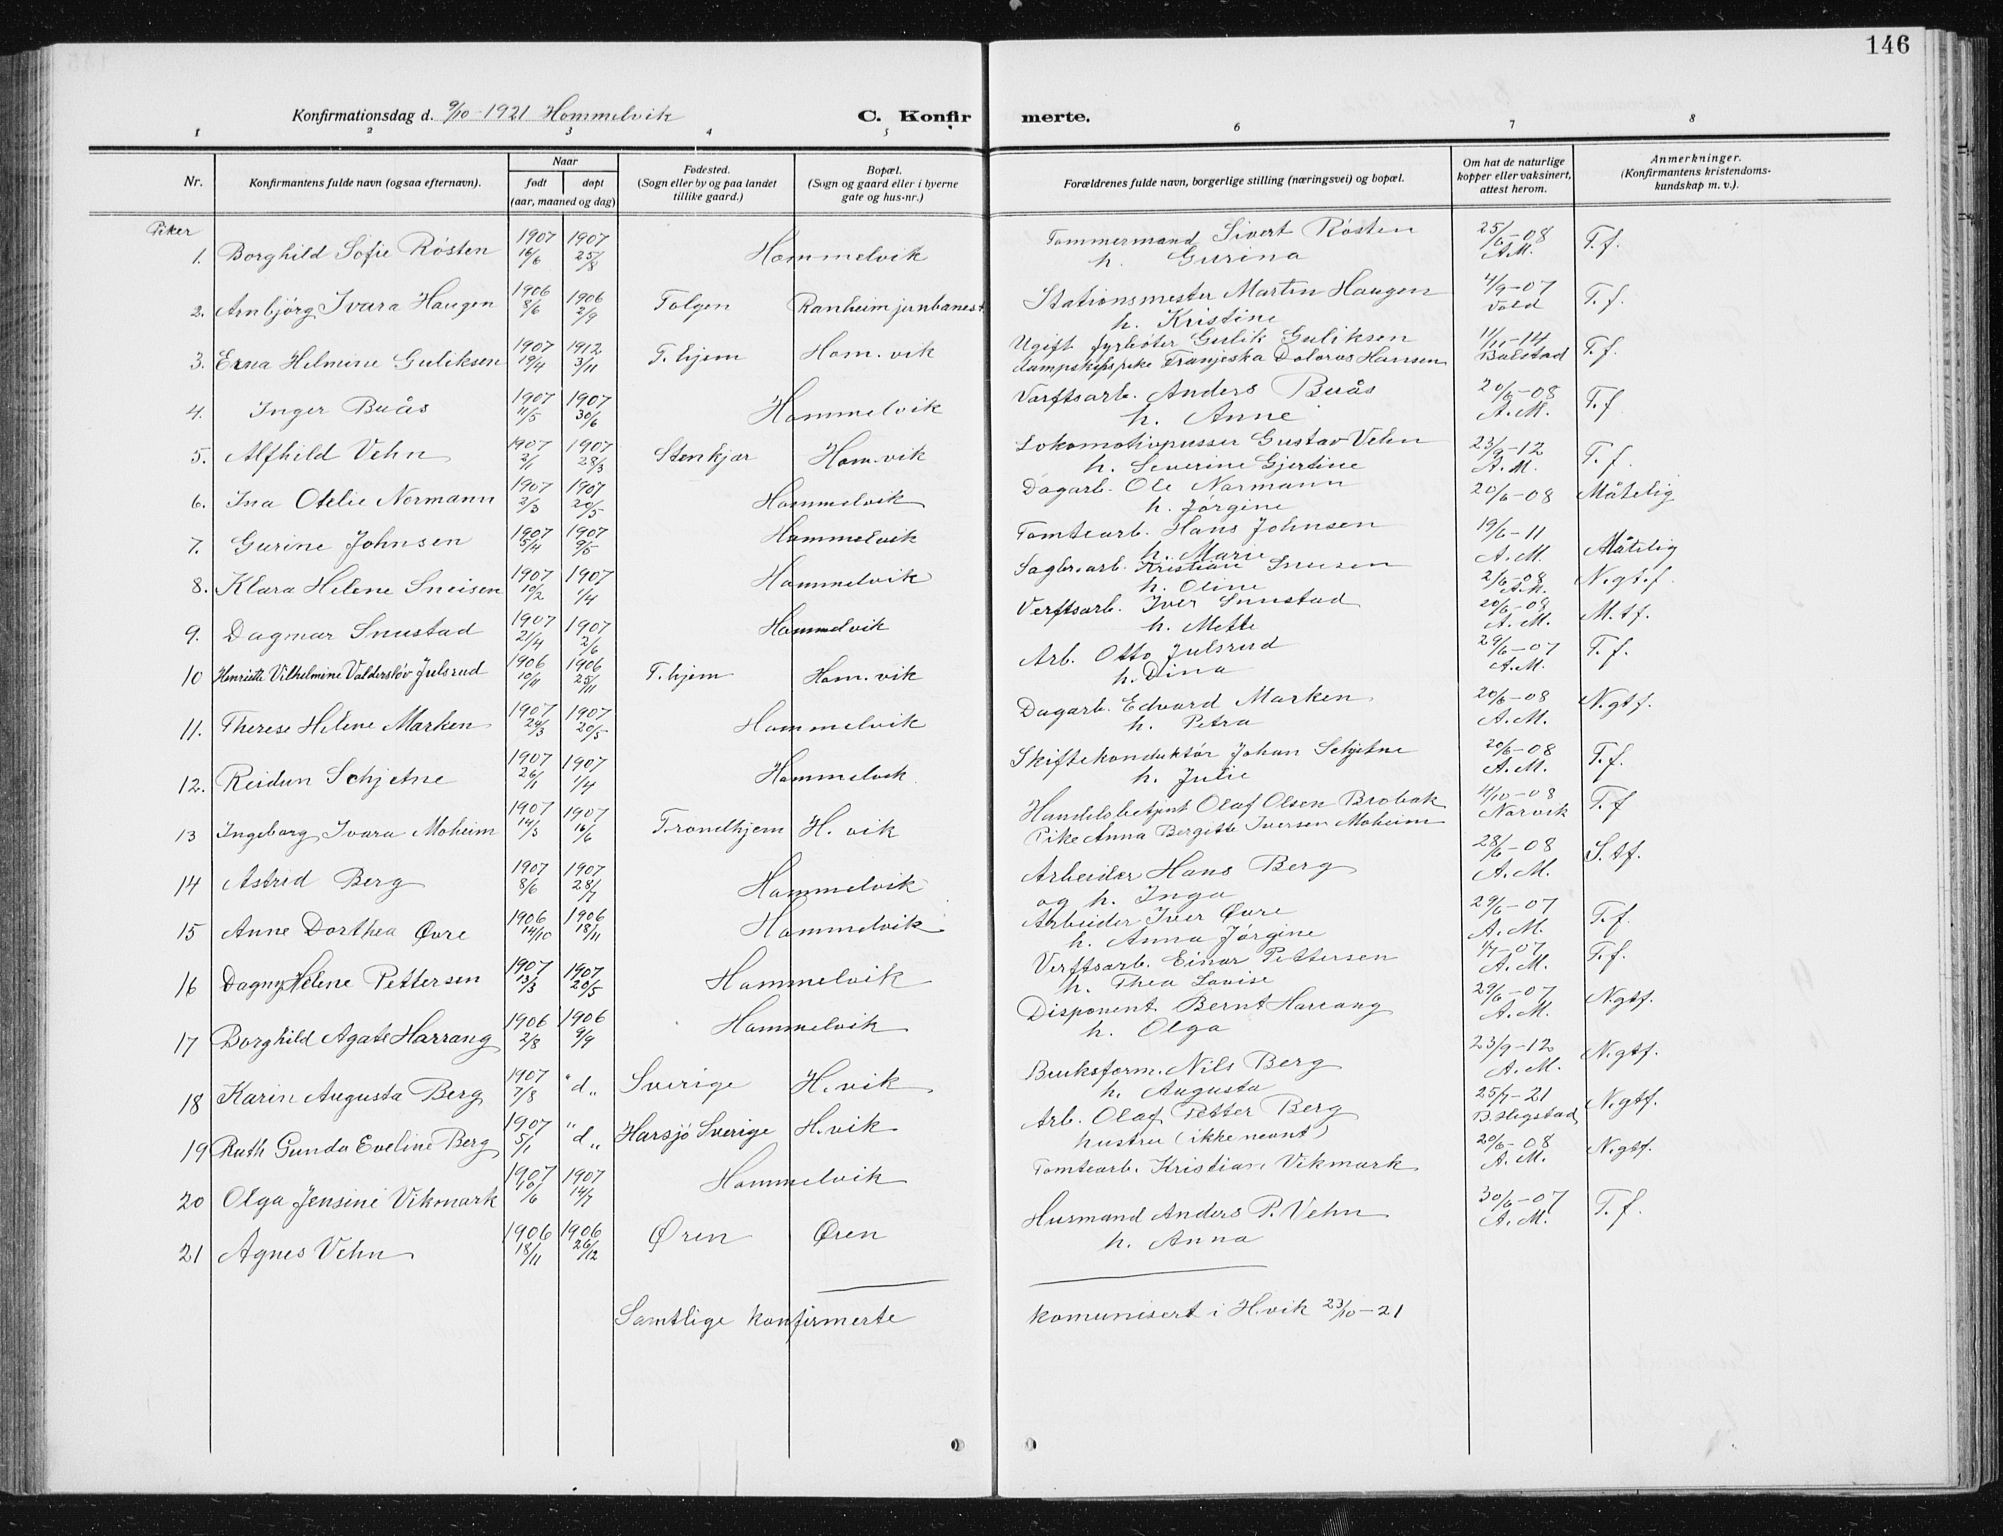 146
Konfirmationsdag d. 9/10-1921 Hommelvik
C. Konfirmerte.
1 2 3 4 5 6 7 8
Nr.
Konfirmantens fulde navn (ogsaa efternavn).
Naar
født
døpt
(aar, maaned og dag)
Fødested.
(Sogn eller by og paa landet
tillike gaard.)
Bopæl.
(Sogn og gaard eller i byerne
gate og hus-nr.)
Forældrenes fulde navn, borgerlige stilling (næringsvei) og bopæl.
Om hat de naturlige
kopper eller vaksinert,
attest herom.
Anmerkninger.
(Konfirmantens kristendoms-
kundskap m. v.).
Piker
1. Borghild Sofie Røsten 1907 16/6 1907 25/8 Hommelvik Tømmermand Sivert Røsten 25/6-08 T.f.
h. Gurina A.M.
2. Arnbjørg Ivara Haugen 1906 8/6 1906 2/9 Tolgen Ranheim jernbanest. Stationsmester Martin Haugen 4/9-07 T.f.
h. Kristine Vold
3. Erna Helmine Guliksen 1907 19/4 1912 3/11 T.hjem Hom.vik Ugift fyrbøter Gulik Guliksen 11/11-14 T.f.
dampskipspike Franjeska Doloros Hansen Balstad
4. Inger Buås 1907 11/5 1907 30/6 Hommelvik Verftsarb. Anders Buås 20/6-08 T.f
h. Anne A.M.
5. Alfhild Vehn 1907 2/1 1907 28/3 Stenkjær Hom.vik Lokomotivpusser Gustav Vehn 23/9-12 T.f.
h. Severine Gjertine A.M.
6. Ina Otelie Normann 1907 2/3 1907 20/5 Hommelvik Dagarb. Ole Normann 20/6-08 Måtelig
h. Jørgine
7. Gurine Johnsen 1907 5/4 1907 9/5 Hommelvik Tomtearb. Hans Johnsen 19/6-11 Måtelig
h. Marie A.M.
8. Klara Helene Sneisen 1907 10/2 1907 1/4 Hommelvik Sagbr.arb. Kristian Sneisen 2/6-08 N.gt.f.
h. Oline A.M.
9. Dagmar Snustad 1907 21/4 1907 2/6 Hommelvik Verftsarb. Iver Snustad 20/6-08 M.tf.
h. Mette A.M.
10 Henriette Vilhelmine Valdersløv Julsrud 1906 10/11 1906 25/11 T.hjem Hom.vik Arb. Otto Julsrud 29/6-07 T.f.
h. Dina A.M.
11. Therese Helene Marken 1907 24/3 1907 20/5 Hommelvik Dagarb. Edvard Marken 20/6-08 N.gtf.
h. Petra A.M.
12. Reidun Schjetne 1907 26/1 1907 1/4 Hommelvik Skiftekonduktør Johan Schjetne 20/6-08 T.f.
h. Julie A.M.
13 Ingeborg Ivara Moheim 1907 14/3 1907 16/6 Trondhjem H.vik Handelsbetjnt Olaf Olsen Brobak 4/10-08 T.f
Pike Anna Bergitte Iversen Moheim Narvik
14 Astrid Berg 1907 8/6 1907 28/7 Hommelvik Arbeider Hans Berg 28/6-08 S.tf.
og h. Inga A.M.
15 Anne Dorthea Øvre 1906 14/10 1906 18/11 Hommelvik Arbeider Iver Øvre 29/6-07 T.f.
h. Anna Jørgine A.M.
16 Dagny Helene Pettersen 1907 13/3 1907 20/5 Hommelvik Verftsarb. Einar Pettersen 1/7-07 T.f.
h. Thea Lovise A.M.
17 Borghild Agate Harrang 1906 2/8 1906 9/9 Hommelvik Disponent Bernt Harrang 29/6-07 N.gtf.
h. Olga A.M.
18 Karin Augusta Berg 1907 7/8 " d " Sverige H.vik Bruksform. Nils Berg 23/9-12 N.gtf.
h. Augusta A.M.
19 Ruth Gunda Eveline Berg 1907 5/1 " d " Harsjö Sverige H.vik Arb. Olaf Petter Berg 25/7-21 N.gtf.
hustru (ikke nevnt) B. Hegstad
20 Olga Jensine Vikmark 1907 10/6 1907 14/7 Hommelvik Tomtearb. Kristian Vikmark 20/6-08 N.gtf.
A.M.
21 Agnes Vehn 1906 18/11 1906 26/12 Øren Øren Husmand Anders P. Vehn 30/6-07 T.f.
h. Anna A.M.
Samtlige konfirmerte komunisert i H.vik 23/10-21